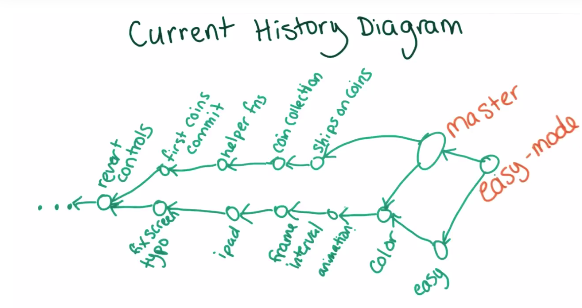 Current History Diagram
revert
controls
first coins
commit
helper fns
coin collection
ships on coins
master
easy-mode
...
fix screen
typo
ipad
frame
interval
animation
color
easy